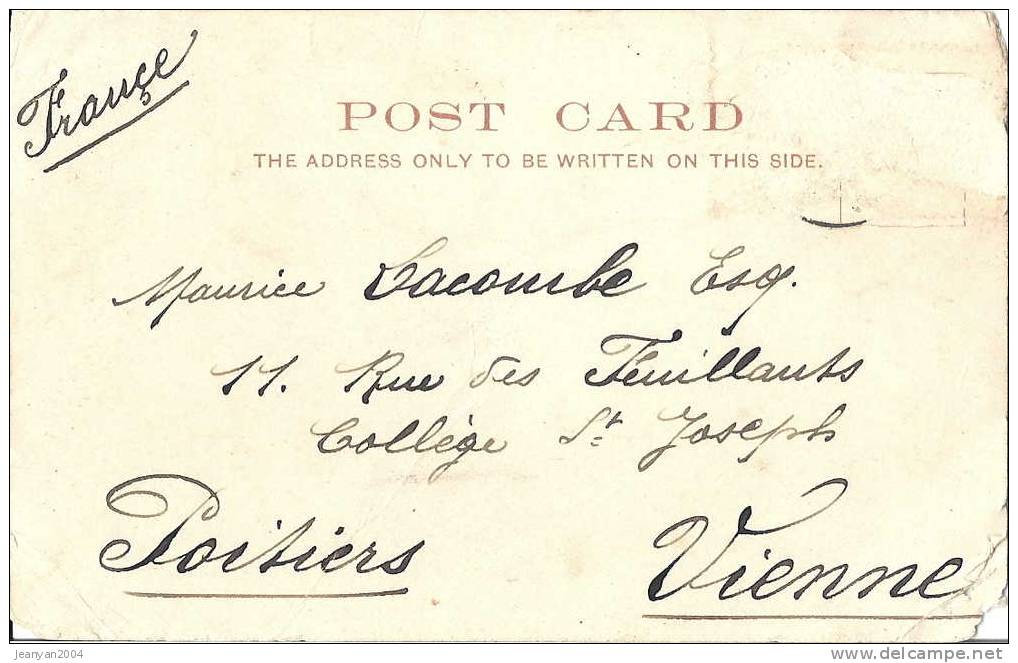 France
POST CARD
THE ADDRESS ONLY TO BE WRITTEN ON THIS SIDE.
Maurice Lacombe Esq.
11. Rue des Feuillants
Collège St Joseph
Poitiers Vienne
jeanyan2004
delcampe.net